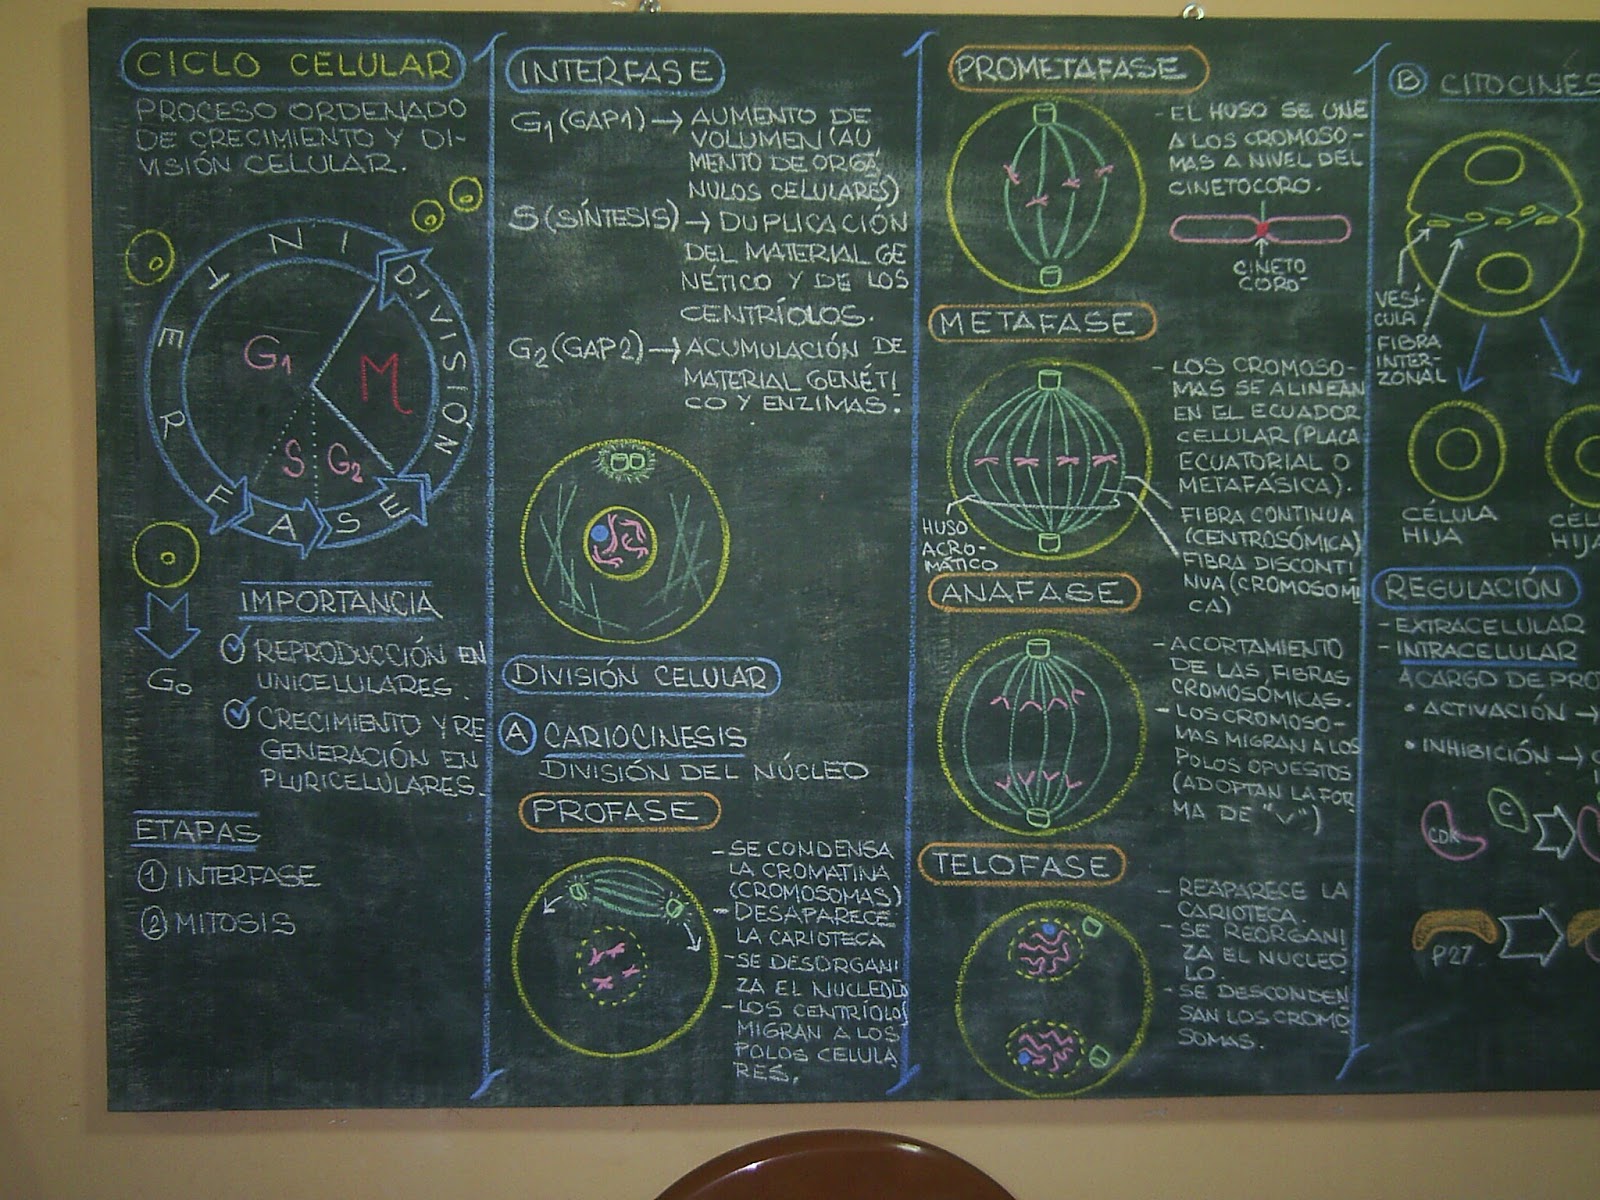 CICLO CELULAR
PROCESO ORDENADO
DE CRECIMIENTO Y DI-
VISIÓN CELULAR.
INTERFASE
DIVISIÓN
G1
M
S
G2
G0
IMPORTANCIA
REPRODUCCIÓN EN
UNICELULARES.
CRECIMIENTO Y RE
GENERACIÓN EN
PLURICELULARES.
ETAPAS
1 INTERFASE
2 MITOSIS
INTERFASE
G1 (GAP1) → AUMENTO DE
VOLUMEN (AU
MENTO DE ORGÁ
NULOS CELULARES)
S (SÍNTESIS) → DUPLICACIÓN
DEL MATERIAL GE
NÉTICO Y DE LOS
CENTRÍOLOS.
G2 (GAP2) → ACUMULACIÓN DE
MATERIAL GENÉTI
CO Y ENZIMAS.
DIVISIÓN CELULAR
A CARIOCINESIS
DIVISIÓN DEL NÚCLEO
PROFASE
- SE CONDENSA
LA CROMATINA
(CROMOSOMAS)
- DESAPARECE
LA CARIOTECA
- SE DESORGANI
ZA EL NUCLEOLO
- LOS CENTRÍOLOS
MIGRAN A LOS
POLOS CELULA
RES.
PROMETAFASE
- EL HUSO SE UNE
A LOS CROMOSO-
MAS A NIVEL DEL
CINETOCORO.
CINETO
CORO
METAFASE
- LOS CROMOSO-
MAS SE ALINEAN
EN EL ECUADOR
CELULAR (PLACA
ECUATORIAL O
METAFÁSICA).
FIBRA CONTINUA
(CENTROSÓMICA)
FIBRA DISCONTI
NUA (CROMOSOMI
CA)
HUSO
ACRO-
MÁTICO
ANAFASE
- ACORTAMIENTO
DE LAS FIBRAS
CROMOSÓMICAS.
- LOS CROMOSO-
MAS MIGRAN A LOS
POLOS OPUESTOS
(ADOPTAN LA FOR
MA DE "V")
TELOFASE
- REAPARECE LA
CARIOTECA.
- SE REORGANI
ZA EL NUCLEO
LO.
- SE DESCONDEN
SAN LOS CROMO
SOMAS.
B CITOCINES
VESÍ-
CULA
FIBRA
INTER-
ZONAL
CÉLULA
HIJA
CÉL
HIJA
REGULACIÓN
- EXTRACELULAR
- INTRACELULAR
A CARGO DE PRO
• ACTIVACIÓN →
• INHIBICIÓN →
CDK
C
P27